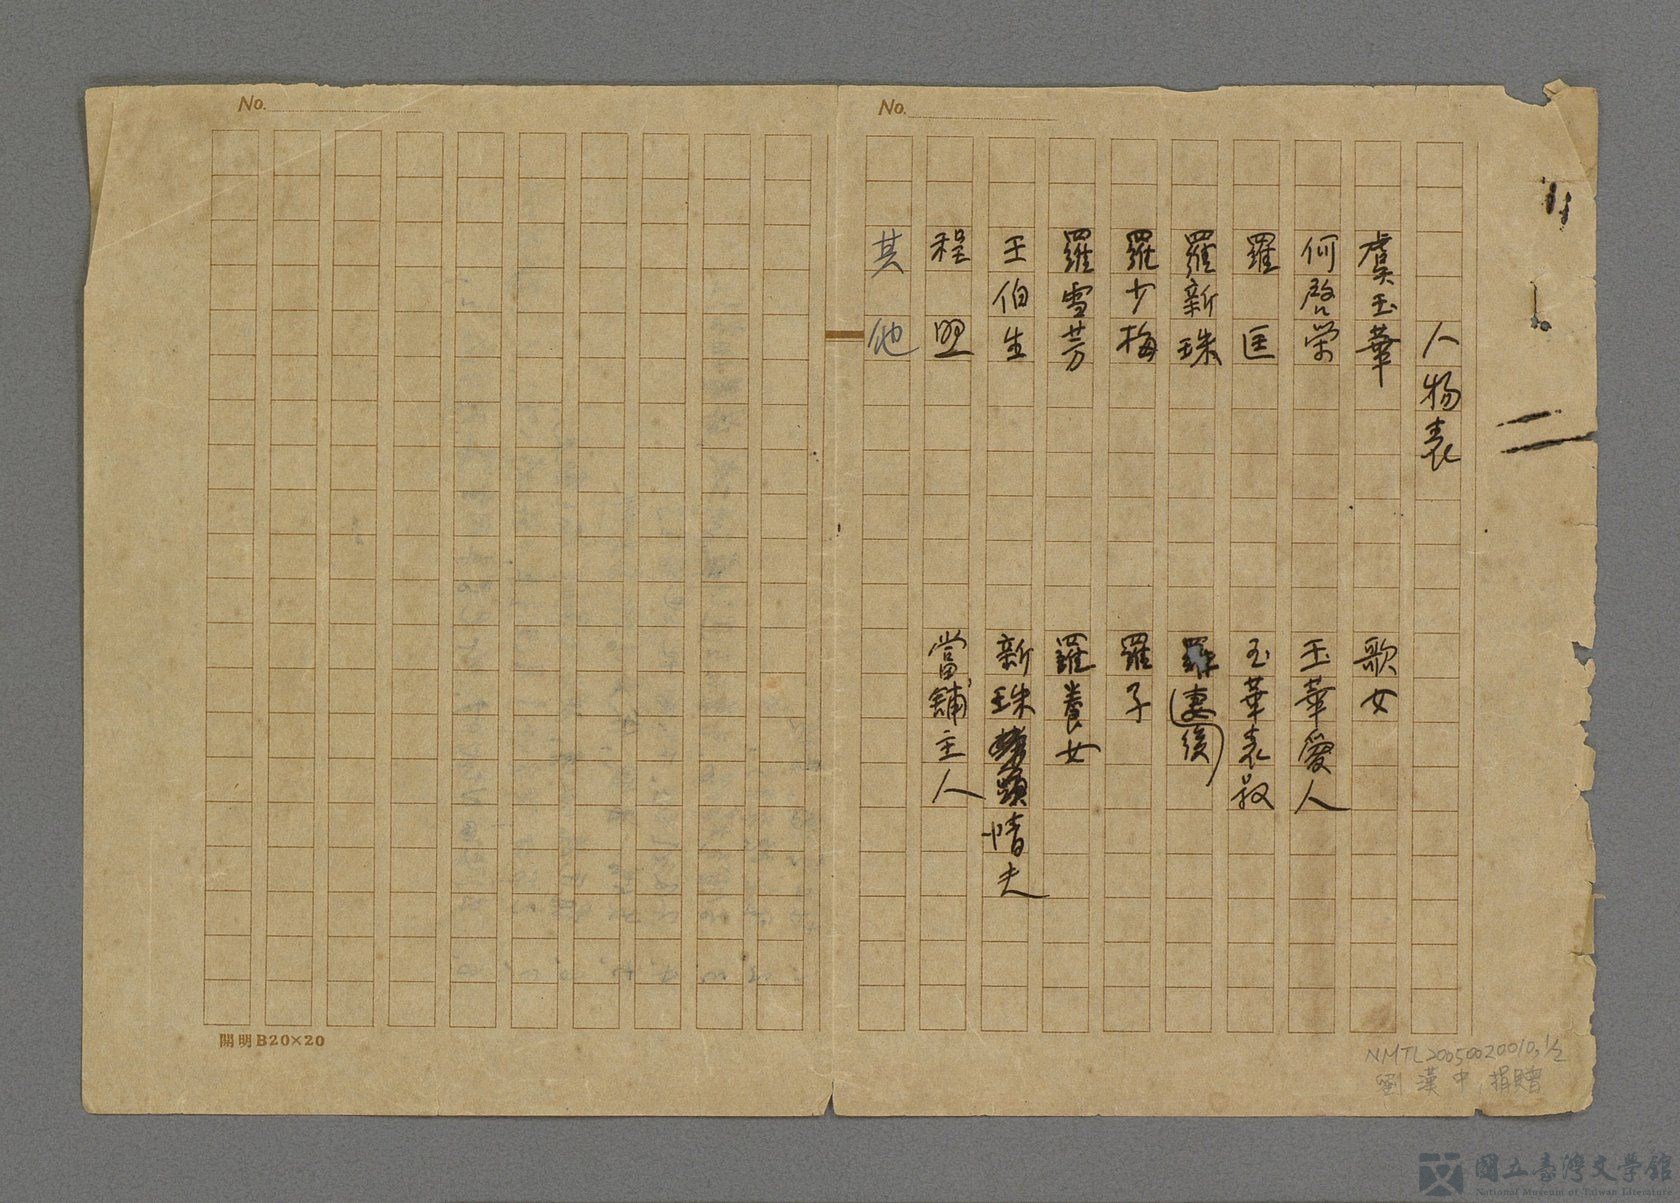 No.
No.
人物表
虞玉華 歌女
何啓榮 玉華愛人
羅匡 玉華表叔
羅新珠 羅妻(後)
羅少梅 羅子
羅雪芳 羅養女
王伯生 新珠情夫
程盟 當舖主人
其他
開明B20×20
NMTL20050020010,1/2
劉漢中 捐贈
國立臺灣文學館
National Museum of Taiwan Literature